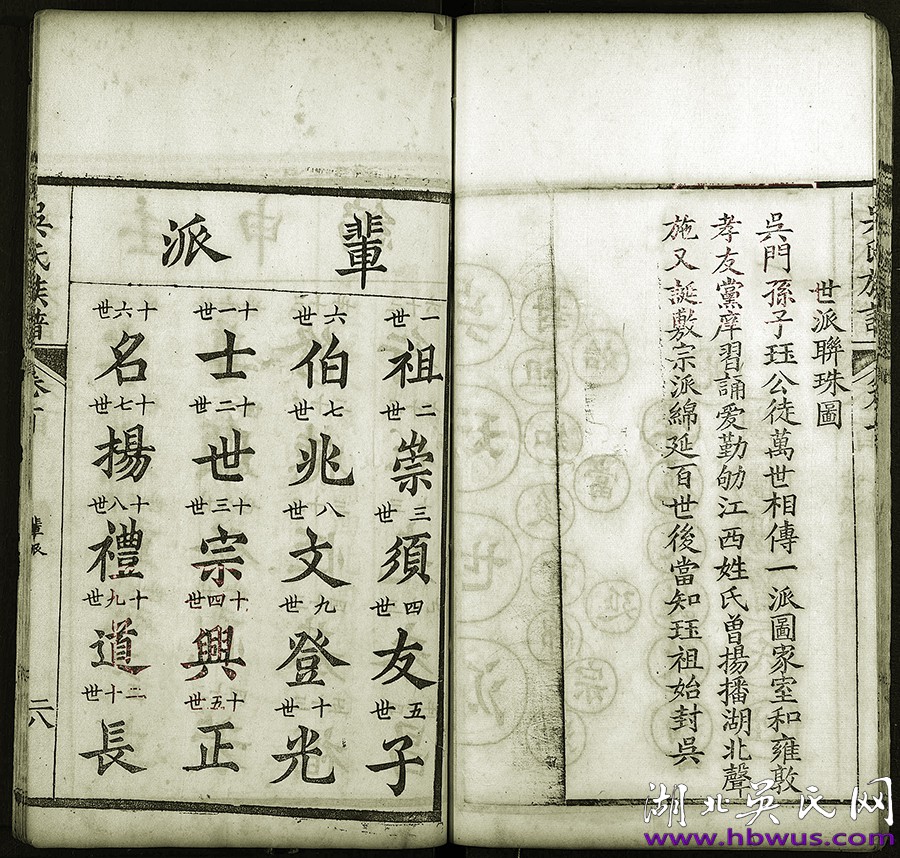 吳氏族譜
世派聯珠圖
吳門孫子珏公徒萬世相傳一派圖家室和雍敦
孝友黨庠習誦愛勤劬江西姓氏曾揚播湖北聲
施又誕敷宗派綿延百世後當知珏祖始封吳
輩派
一世 祖
二世 崇
三世 須
四世 友
五世 子
六世 伯
七世 兆
八世 文
九世 登
十世 光
十一世 士
十二世 世
十三世 宗
十四世 興
十五世 正
十六世 名
十七世 揚
十八世 禮
十九世 道
二十世 長
吳氏族譜
輩派
二八
湖北吴氏网
www.hbwus.com